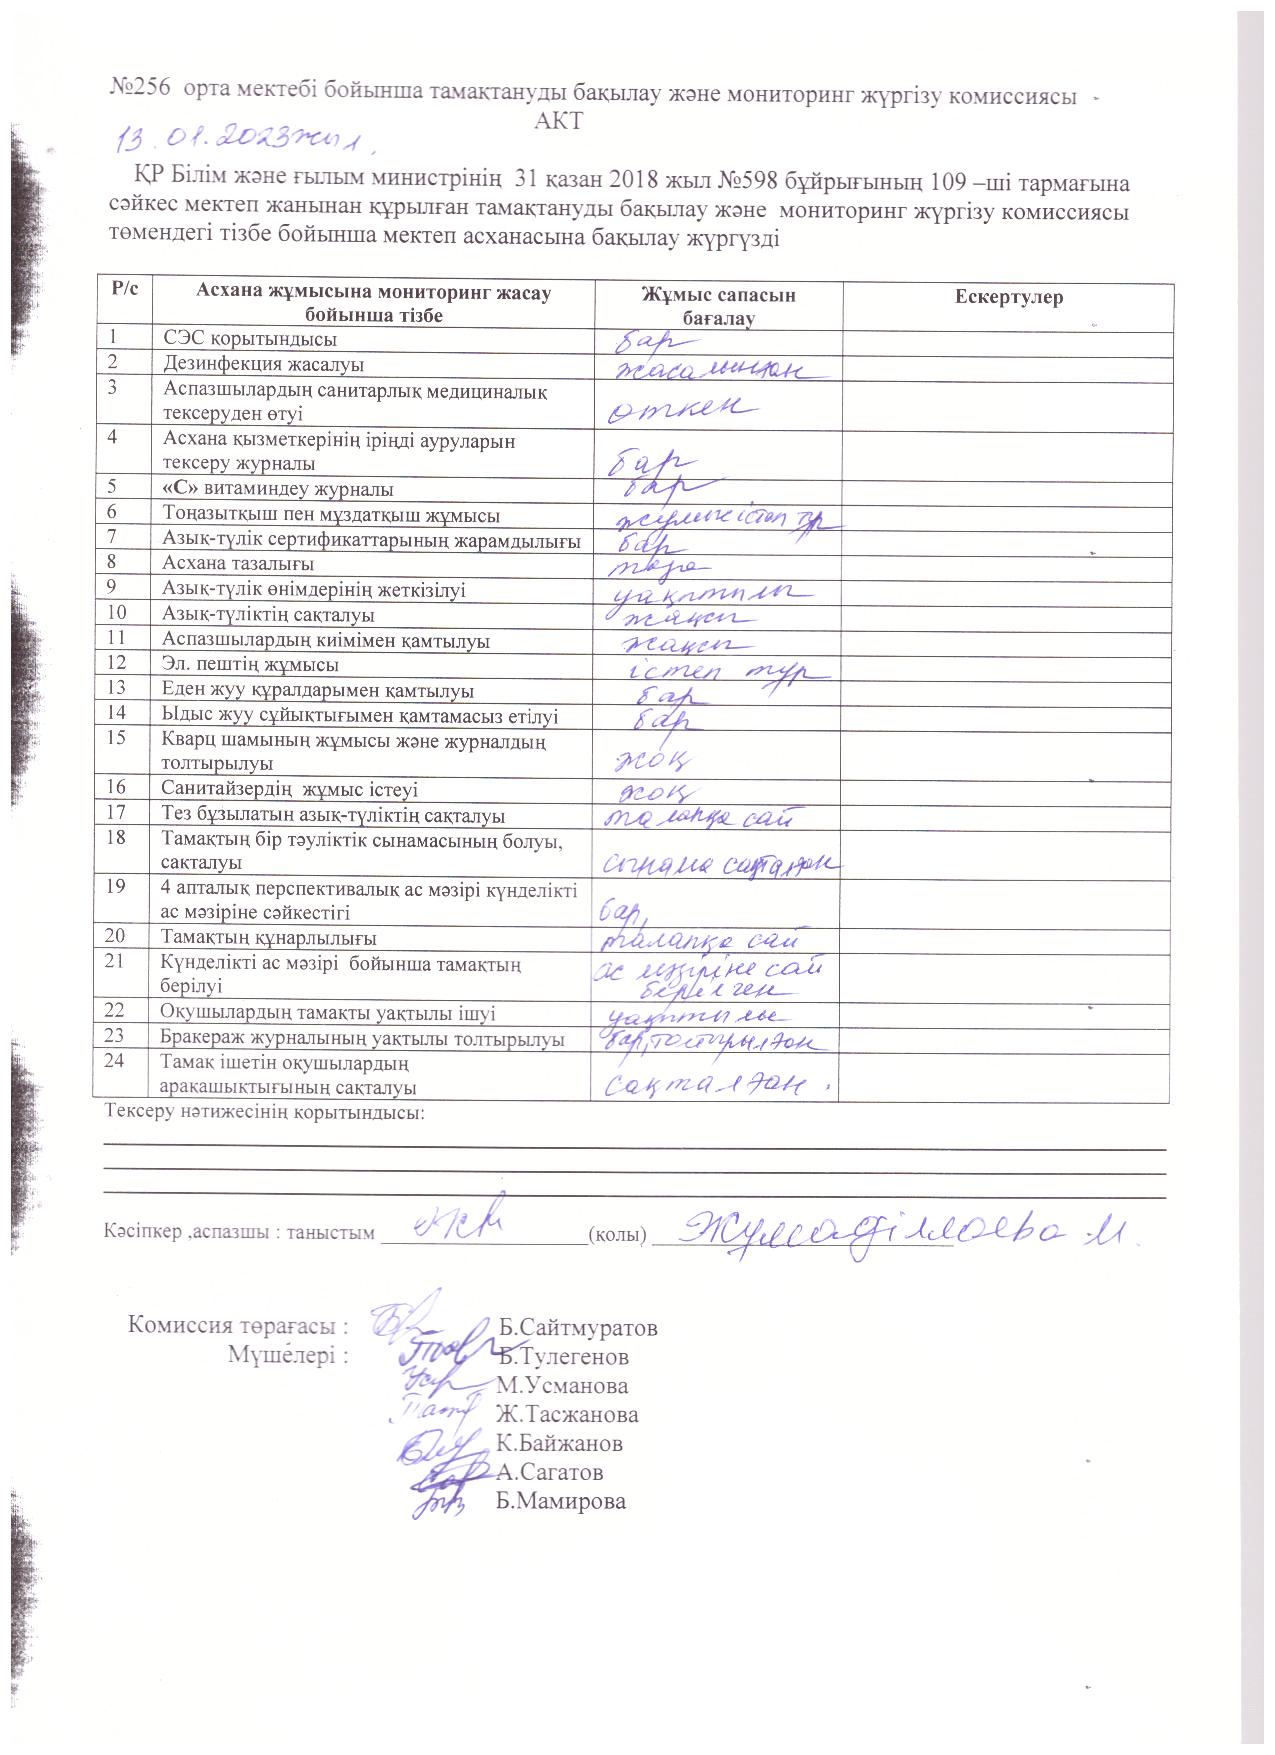 №256 орта мектебі бойынша тамақтануды бақылау және мониторинг жүргізу комиссиясы -
АКТ
13.01.2023жыл.
ҚР Білім және ғылым министрінің 31 қазан 2018 жыл №598 бұйрығының 109 –ші тармағына
сәйкес мектеп жанынан құрылған тамақтануды бақылау және мониторинг жүргізу комиссиясы
төмендегі тізбе бойынша мектеп асханасына бақылау жүргүзді
Р/с Асхана жұмысына мониторинг жасау Жұмыс сапасын Ескертулер
бойынша тізбе бағалау
1 СЭС қорытындысы бар
2 Дезинфекция жасалуы жасалынған
3 Аспазшылардың санитарлық медициналық
тексеруден өтуі өткен
4 Асхана қызметкерінің іріңді ауруларын
тексеру журналы бар
5 «С» витаминдеу журналы бар
6 Тоңазытқыш пен мұздатқыш жұмысы жұмыс істеп тұр
7 Азық-түлік сертификаттарының жарамдылығы бар
8 Асхана тазалығы таза
9 Азық-түлік өнімдерінің жеткізілуі уақытылы
10 Азық-түліктің сақталуы жақсы
11 Аспазшылардың киімімен қамтылуы жақсы
12 Эл. пештің жұмысы істеп тұр
13 Еден жуу құралдарымен қамтылуы бар
14 Ыдыс жуу сұйықтығымен қамтамасыз етілуі бар
15 Кварц шамының жұмысы және журналдың
толтырылуы жоқ
16 Санитайзердің жұмыс істеуі жоқ
17 Тез бұзылатын азық-түліктің сақталуы талапқа сай
18 Тамақтың бір тәуліктік сынамасының болуы,
сақталуы сынама сақталған
19 4 апталық перспективалық ас мәзірі күнделікті
ас мәзіріне сәйкестігі бар,
20 Тамақтың құнарлылығы талапқа сай
21 Күнделікті ас мәзірі бойынша тамақтың ас мәзіріне сай
берілуі берілген
22 Оқушылардың тамақты уақтылы ішуі уақытылы
23 Бракераж журналының уақтылы толтырылуы бар, толтырылған
24 Тамақ ішетін оқушылардың
арақашықтығының сақталуы сақталған.
Тексеру нәтижесінің қорытындысы:
Кәсіпкер ,аспазшы : таныстым (қолы) Жұмаділлаева М.
Комиссия төрағасы : Б.Сайтмуратов
Мүшелері : Б.Тулегенов
М.Усманова
Ж.Тасжанова
К.Байжанов
А.Сагатов
Б.Мамирова